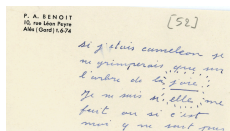 P. A. BENOIT
10, rue Léon Peyre
Alès (Gard) 1.6-74
[52]
si j'étais caméléon je
ne grimperais que sur
l'arbre de la joie
Je ne sais si elle me
fuit ou si c'est
moi y ne sait pas